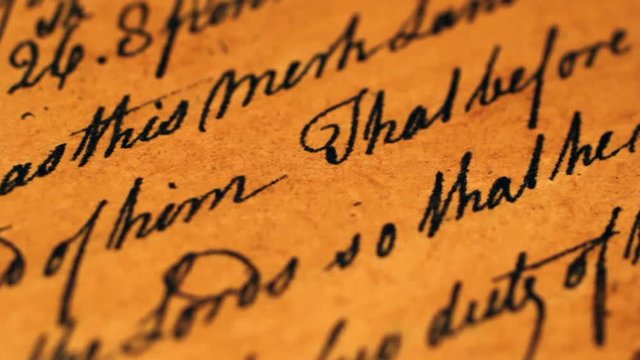 26. 8
as this mesh Lam
of him That before
the Lords so that he
duty of